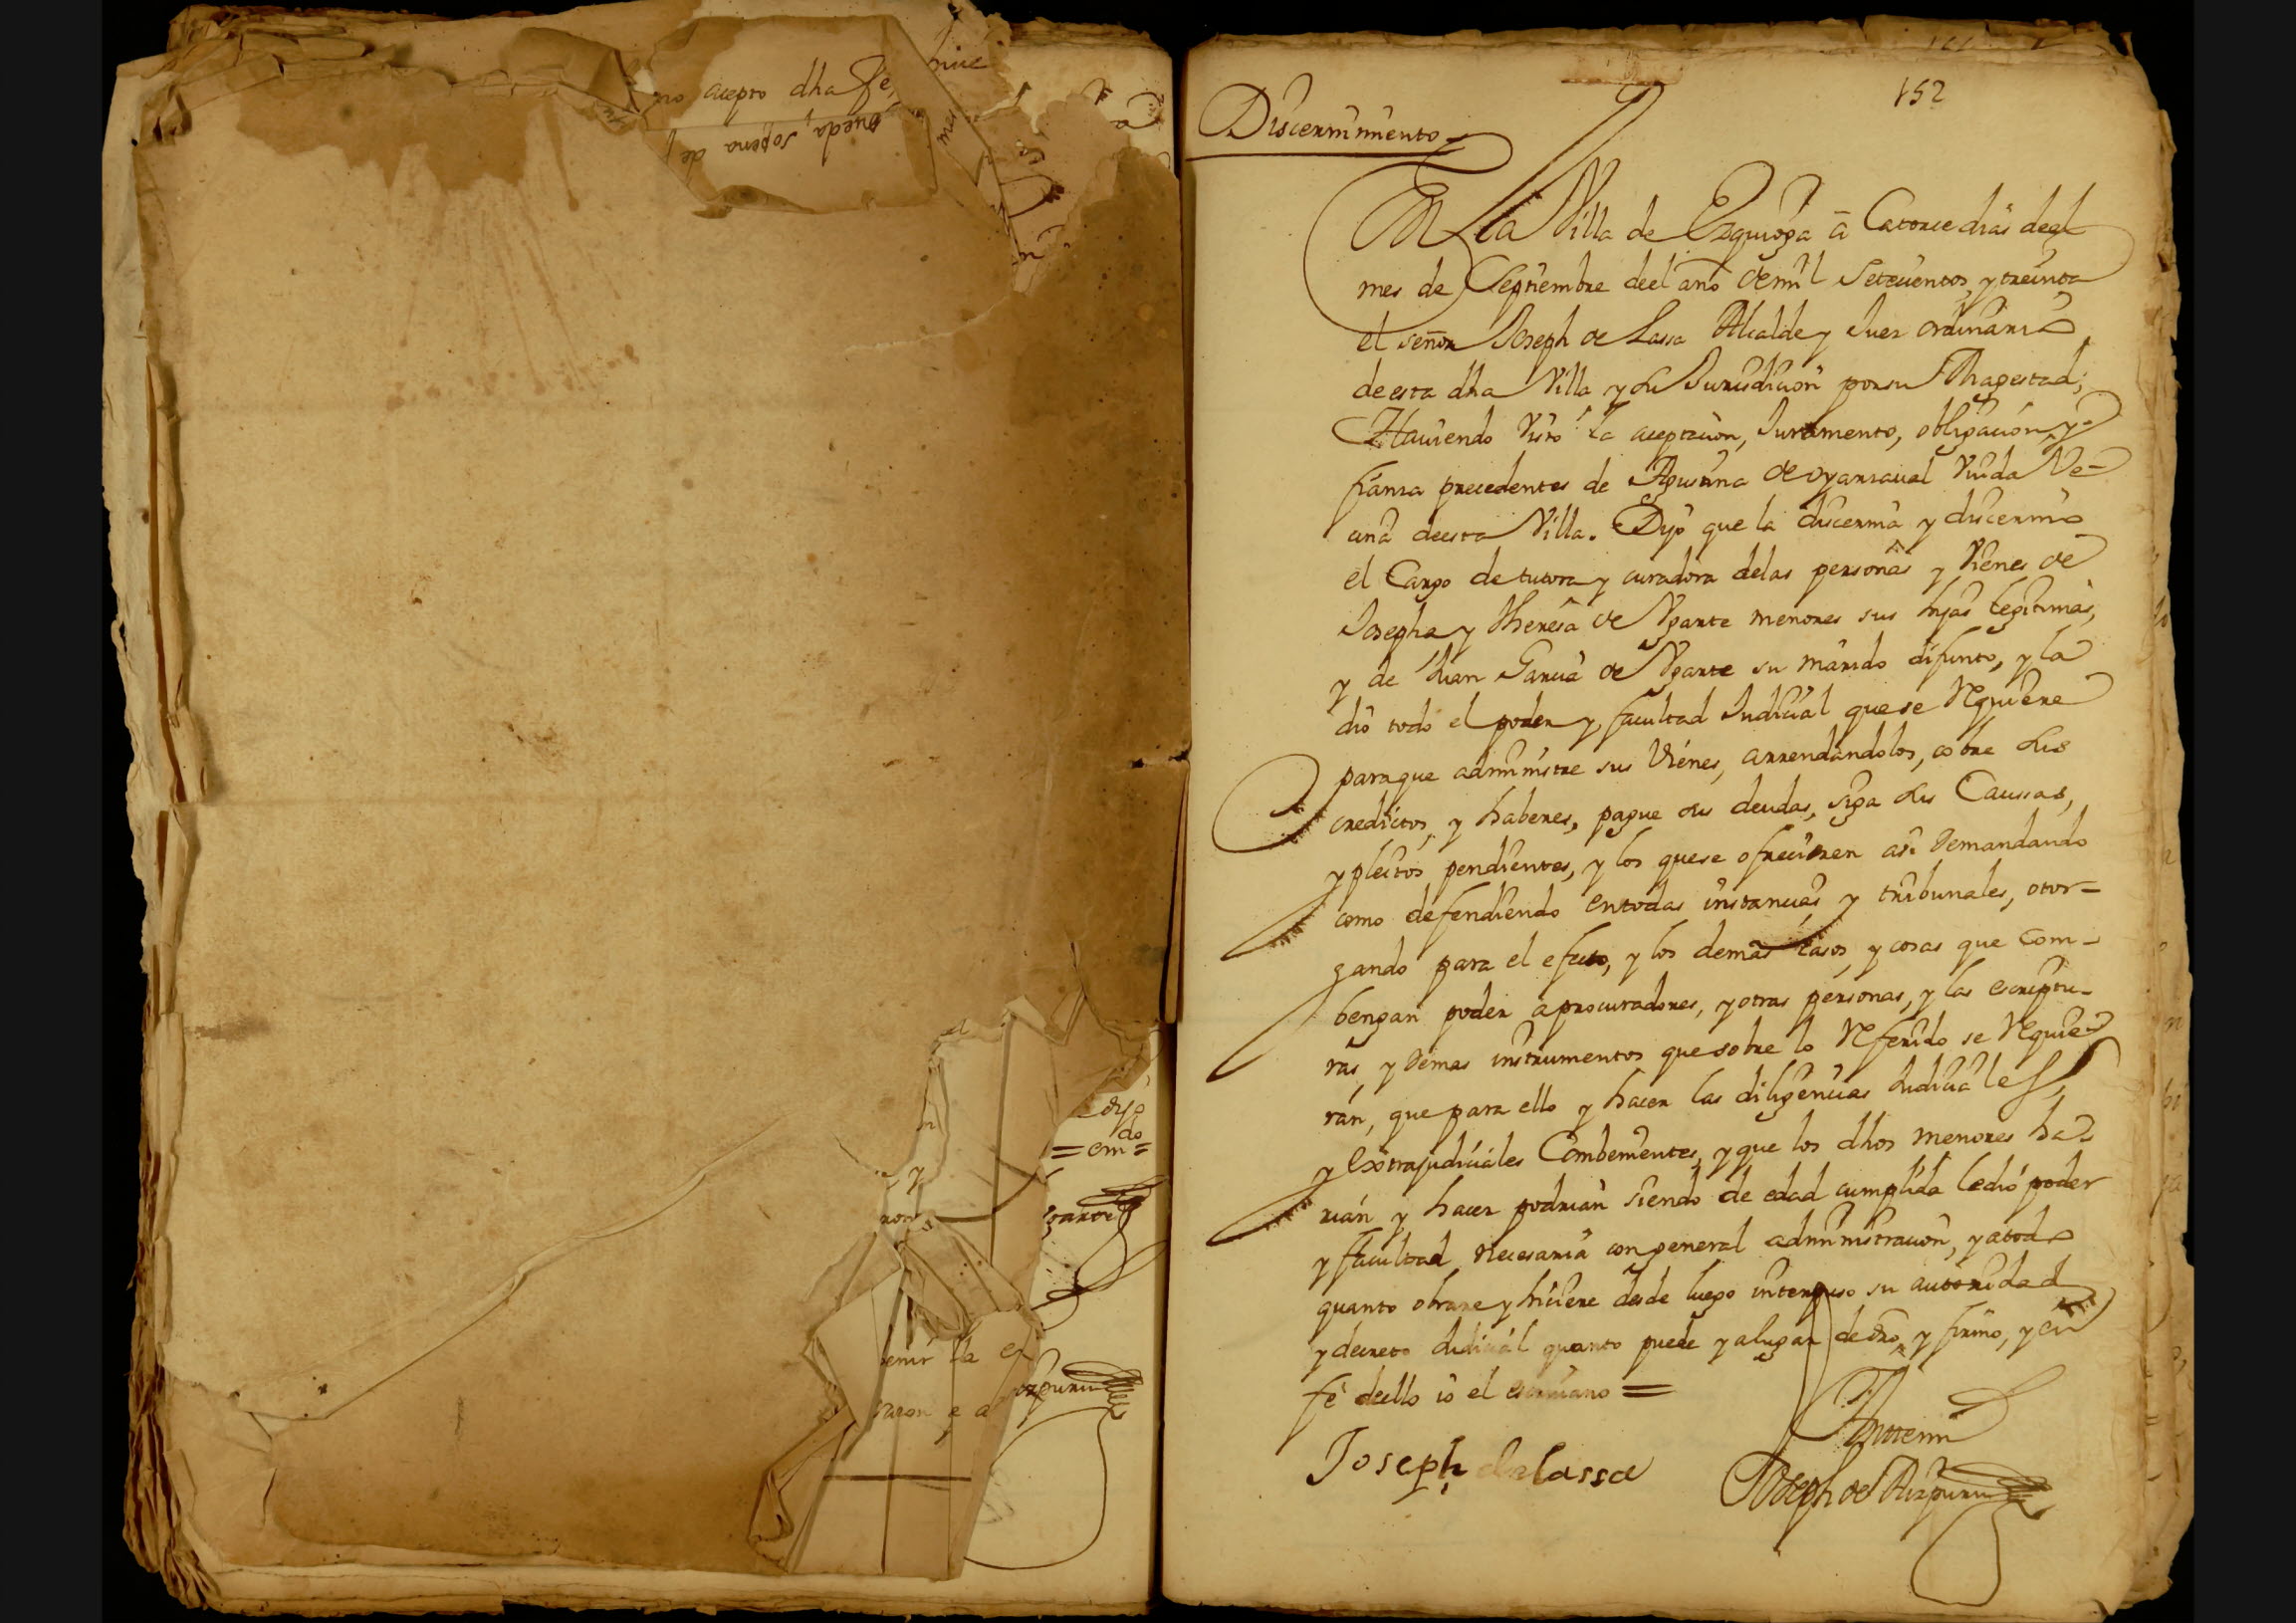 no acepto dha
sopena de
dijo
do
= em =
benir la es
razon e a
152
Discernimiento
En La Villa de Ezquioga â Catorce dias deel
mes de Septiembre deel año de mil Setecientos, y treinta
el señor Joseph de Lassa Alcalde y Juez ordinario
de esta dha Villa y su Jurisdicion por su Magestad;
Haviendo Visto la aceptacion, Juramento, obligacion, y
fianza precedentes de Agustina de oyarzaval Viuda Ve-
cina deesta Villa. Dijo que la discernia y discernio
el Cargo de tutora y curadora delas personas y Vienes de
Josepha y Theresa de Ugarte menores sus hijas legitimas,
y de Juan Garcia de Ugarte su marido difunto, y la
dió todo el poder y facultad Judicial que se Requiere
paraque administre sus Vienes, arrendandolos, cobre sus
credictos, y haberes, pague sus deudas, siga sus Caussas,
y pleitos pendientes, y los que se ofrecieren asi Demandando
como defendiendo en todas instancias y tribunales, otor=
gando para el efecto, y los demas casos, y cosas que com-
bengan poder a procuradores, y otras personas, y las escriptu-
ras y Demas instrumentos que sobre lo Referido se Requie-
rán, que para ello y hacer las diligencias Judiciales,
y Extrajudiciales Combenientes, y que los dhos menores ha-
rian y hacer podrian siendo de edad cumplida ledió poder
y facultad necesaria con general administracion, y atodo
quanto obrare y hiciere desde luego interpuso su autoridad
y decreto Judicial quanto puede y alugar de dro, y firmo, y en
fé deello io el escrivano =
Joseph de lassa
Antemi
Joseph de Aizpuru